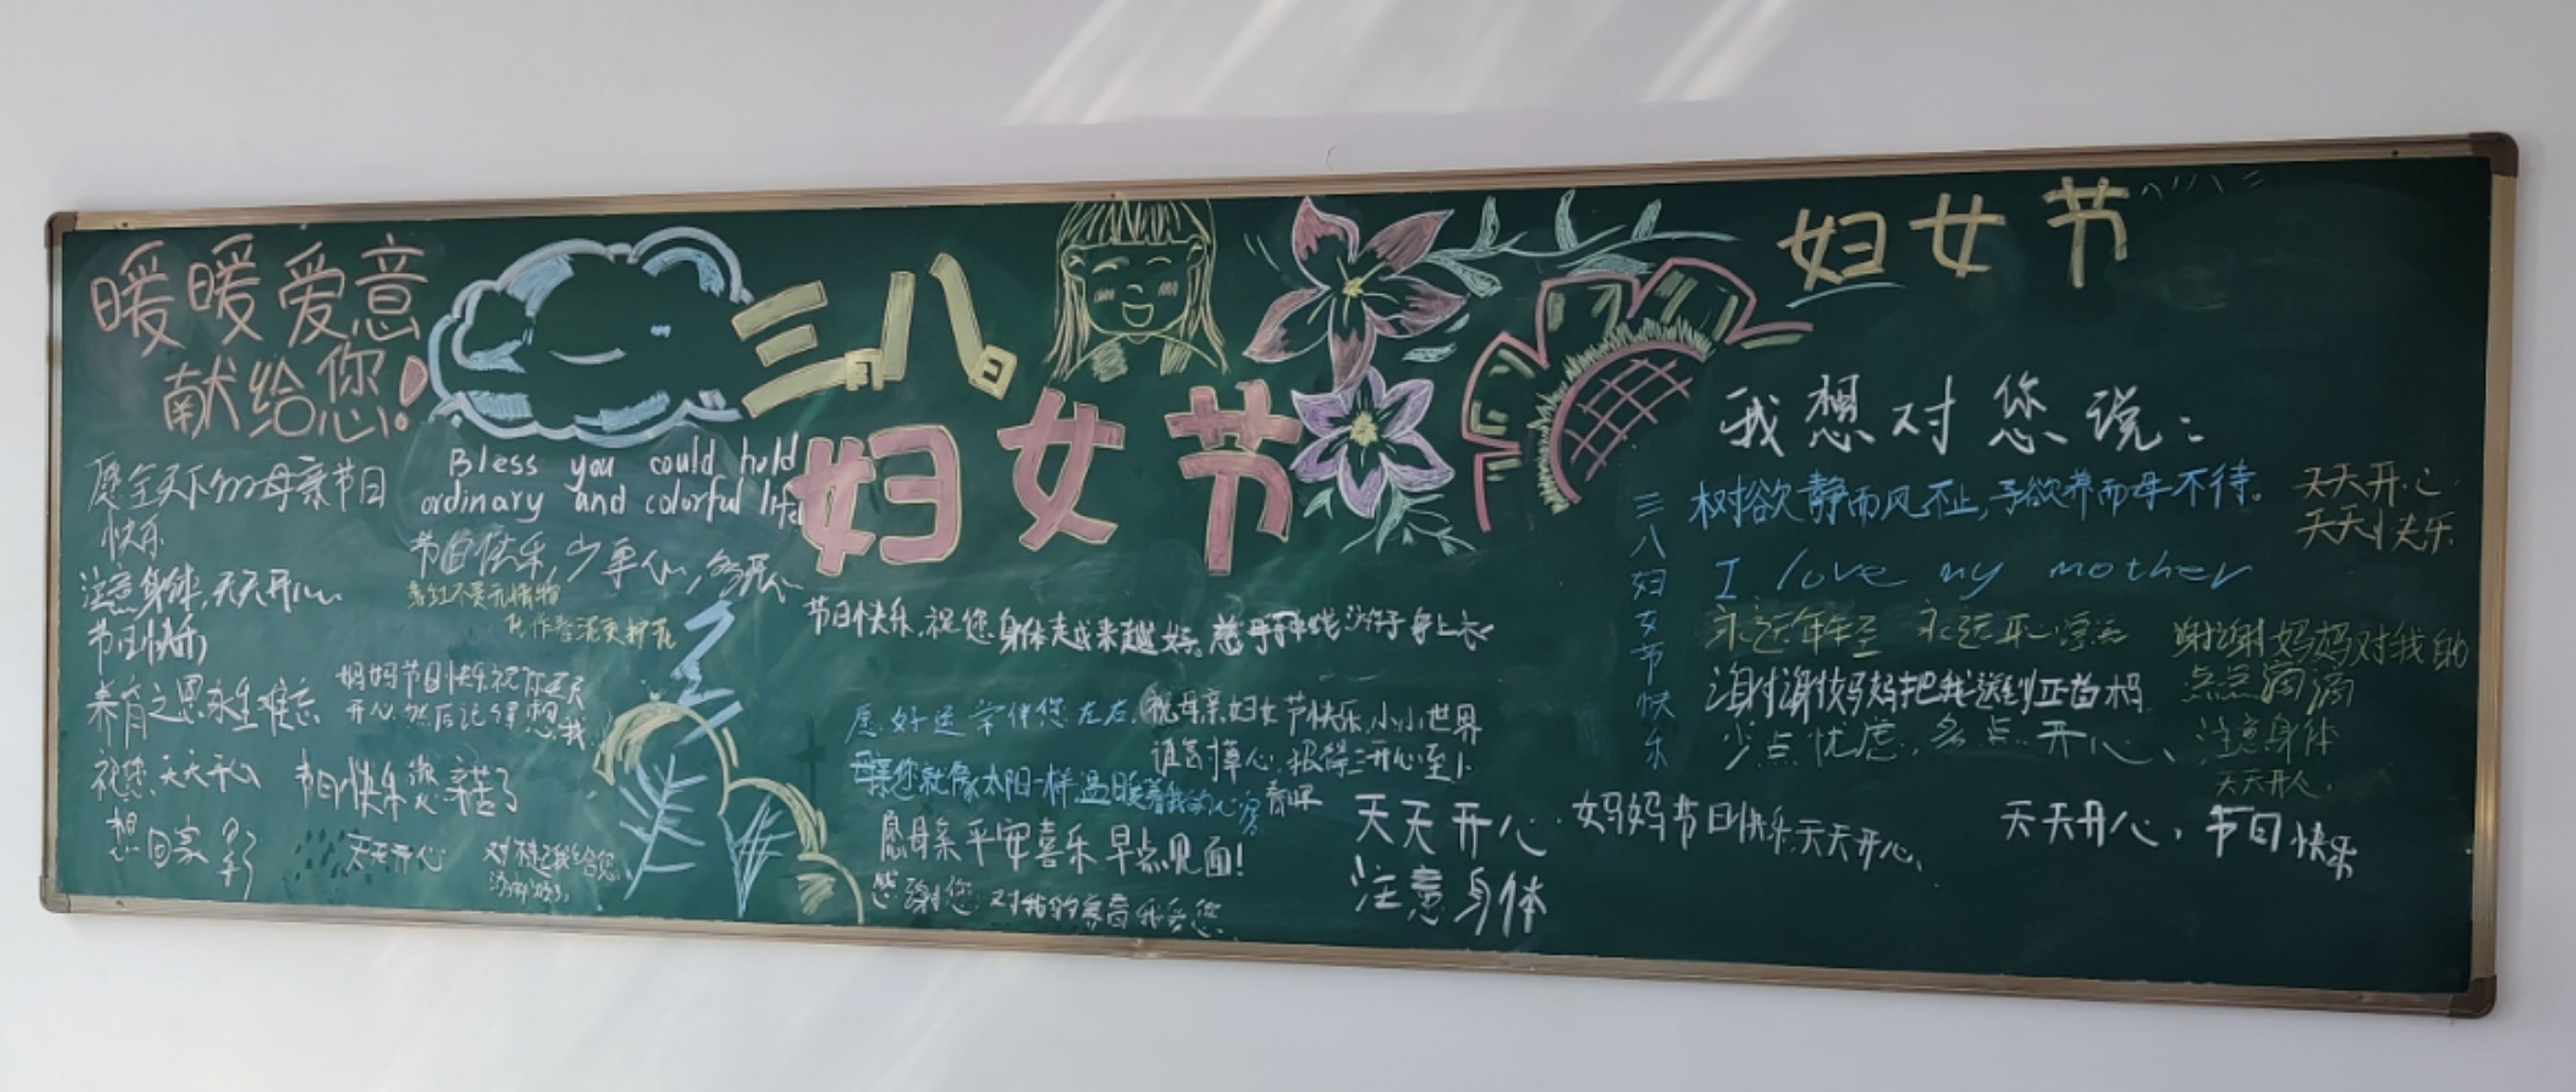 暖暖爱意
献给您!
愿全天下的母亲节日
快乐
注意身体,天天开心
节日快乐
养育之恩永生难忘
祝您天天开心
想回家
Bless you could hold
ordinary and colorful life
节日快乐,少事心,多开心
落红不是无情物
化作春泥更护花
妈妈节日快乐祝你天天
开心 然后记得想我
节日快乐 您辛苦了
天天开心
对不起我给您
三八
月 日
妇女节
节日快乐,祝您身体越来越好。慈母手中线 游子身上衣
愿好运常伴您左右。
祝母亲妇女节快乐,小小世界
谁言寸草心,报得三
春晖
开心至上
母亲您就像太阳一样,温暖着我的心房
愿母亲平安喜乐 早点见面!
感谢您对我的养育 我爱您
天天开心
注意身体
妇女节
我想对您说:
三八妇女节快乐
树欲静而风不止,子欲养而母不待。
I love my mother
永远年轻 永远开心
谢谢妈妈把我送到
少点忧虑,多点开心、
天天开心
天天快乐
谢谢妈妈对我的
点点滴滴
注意身体
天天开心.
妈妈节日快乐天天开心、
天天开心,节日快乐